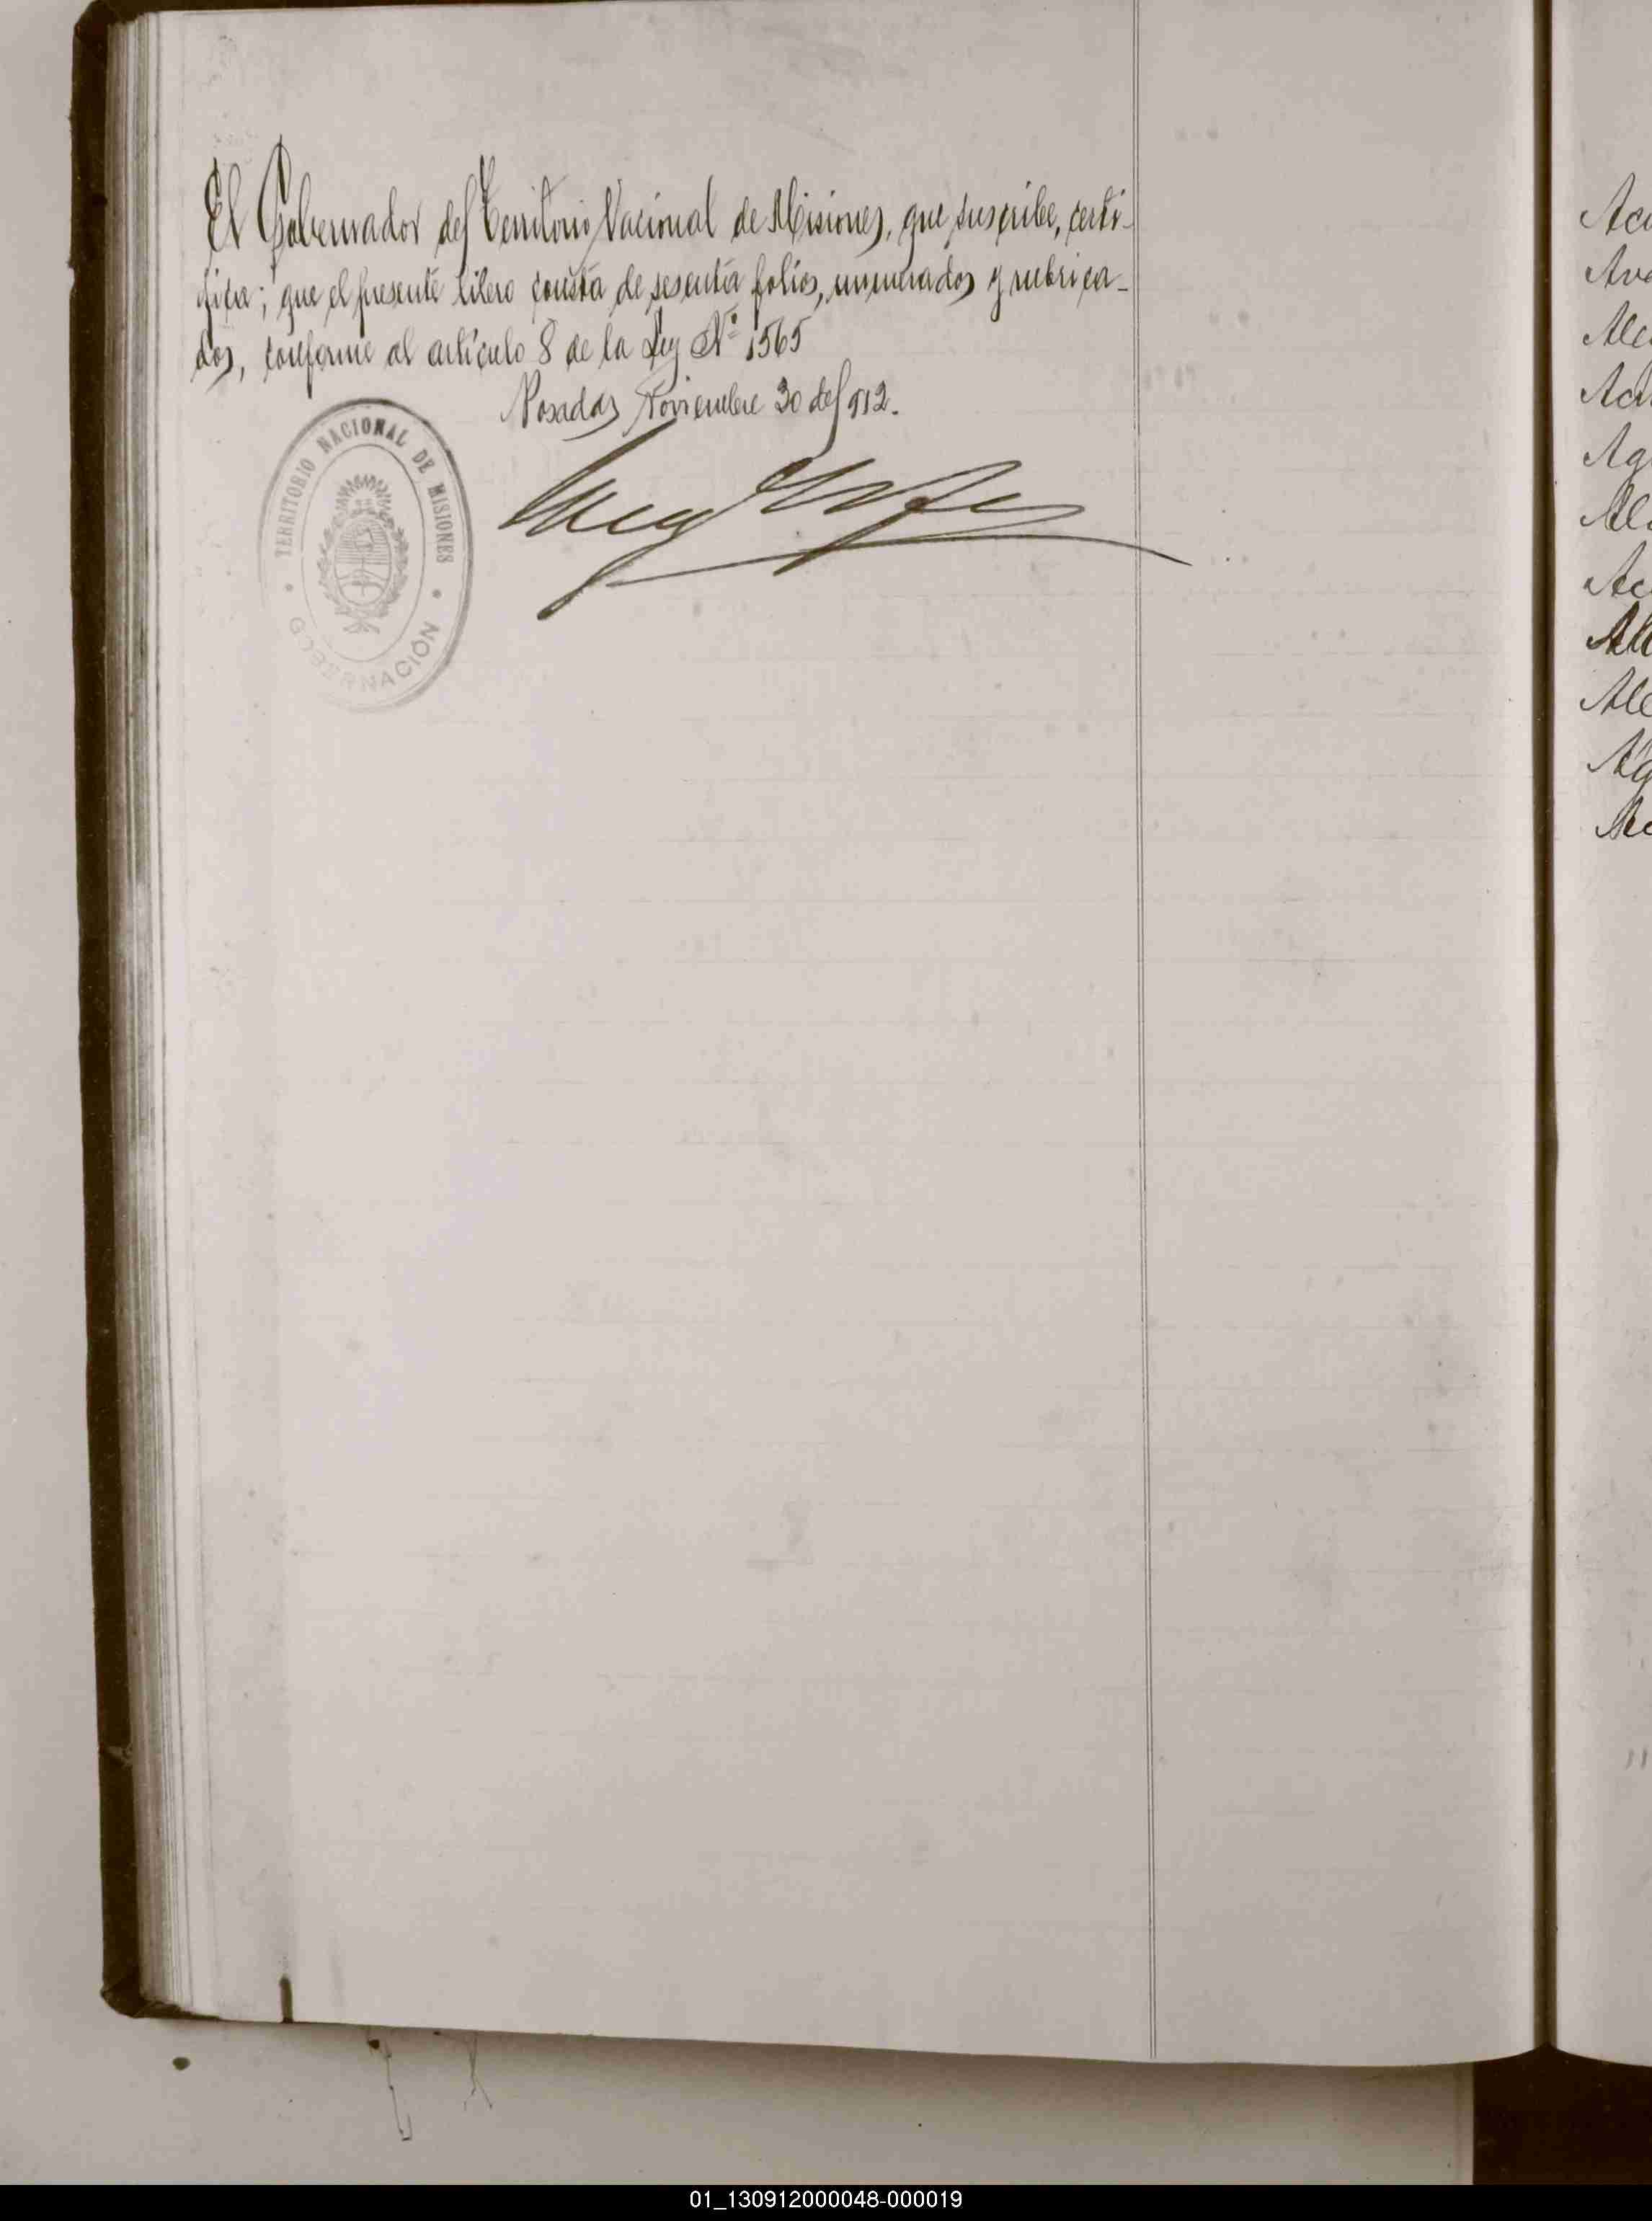 El Gobernador del Territorio Nacional de Misiones, que suscribe, certi-
fica; que el presente libro consta de sesenta folios, numerados y rubrica-
dos, conforme al artículo 8 de la Ley Nº 1565
Posadas Noviembre 30 del 912.
TERRITORIO NACIONAL DE MISIONES
GOBERNACIÓN
01_130912000048-000019